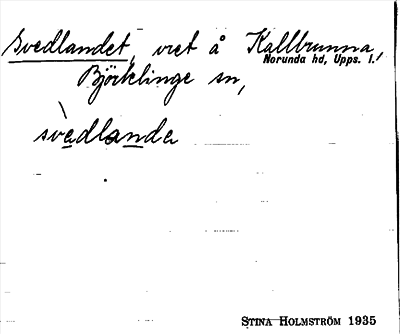 Svedlandet, vret å Kallbrunna,
Norunda hd, Upps. l.
Björklinge sn,
svedlanda
STINA HOLMSTRÖM 1935